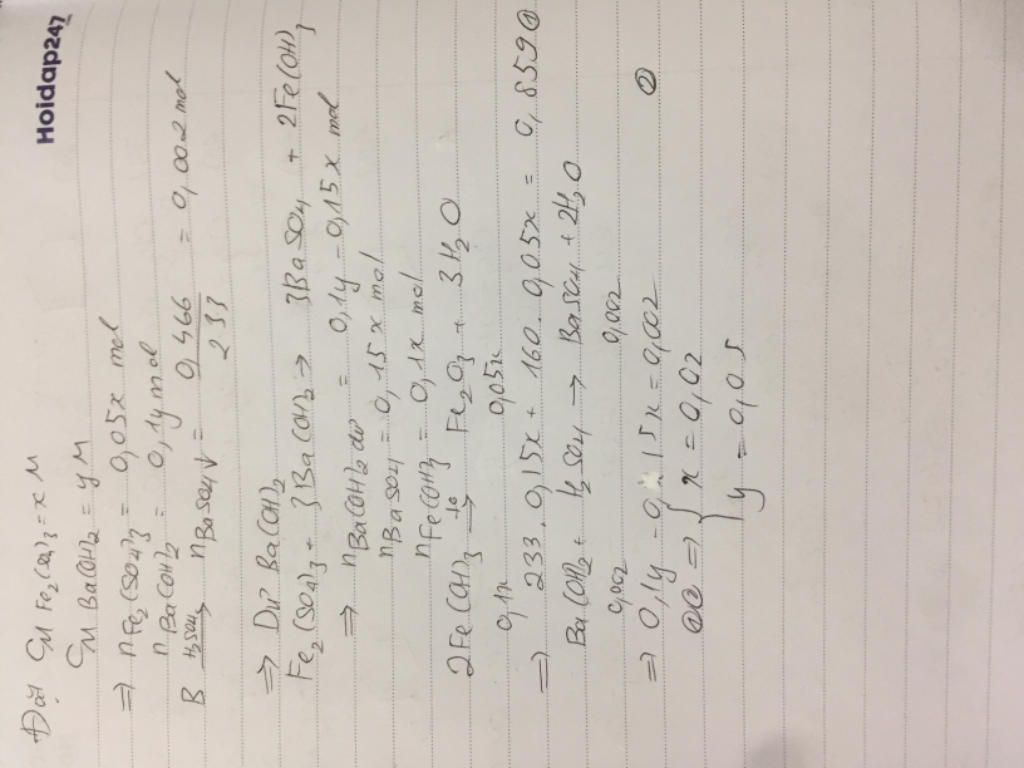 Hoidap247
Đặt CM Fe2(SO4)3 = x M
CM Ba(OH)2 = y M
=> nFe2(SO4)3 = 0,05x mol
nBa(OH)2 = 0,1y mol
B H2SO4→ nBaSO4↓ = 0,466/233 = 0,002 mol
=> Dư Ba(OH)2
Fe2(SO4)3 + 3Ba(OH)2 → 3BaSO4 + 2Fe(OH)3
=> nBa(OH)2 dư = 0,1y - 0,15x mol
nBaSO4 = 0,15x mol
nFe(OH)3 = 0,1x mol
2Fe(OH)3 to→ Fe2O3 + 3H2O
0,1x 0,05x
=> 233.0,15x + 160.0,05x = 0,859 ①
Ba(OH)2 + H2SO4 → BaSO4 + 2H2O
0,002 0,002
=> 0,1y - 0,15x = 0,002 ②
①② => { x = 0,02
y = 0,05